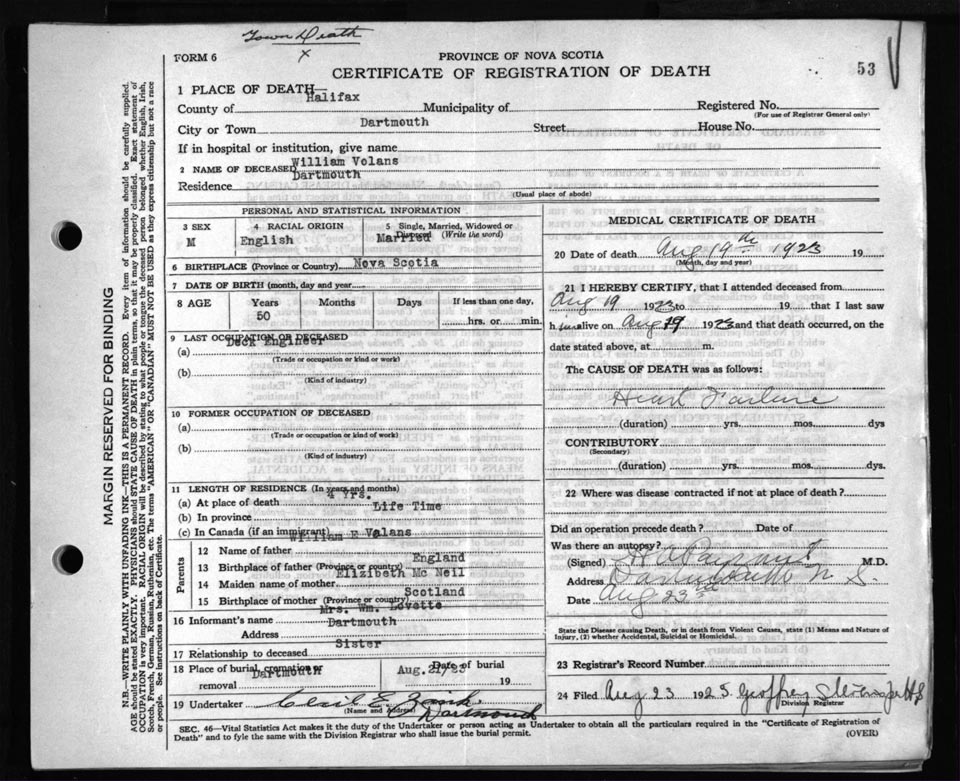 Town Death
X
FORM 6
PROVINCE OF NOVA SCOTIA
CERTIFICATE OF REGISTRATION OF DEATH
53
1 PLACE OF DEATH—
County of Halifax Municipality of Registered No.
(For use of Registrar General only)
City or Town Dartmouth Street House No.
If in hospital or institution, give name
2 NAME OF DECEASED William Volans
Residence Dartmouth
(Usual place of abode)
PERSONAL AND STATISTICAL INFORMATION
3 SEX M
4 RACIAL ORIGIN English
5 Single, Married, Widowed or Divorced (Write the word) Married
6 BIRTHPLACE (Province or Country) Nova Scotia
7 DATE OF BIRTH (month, day and year)
8 AGE Years Months Days If less than one day,
50 hrs. or min.
9 LAST OCCUPATION OF DECEASED
(a) Deck Engineer
(Trade or occupation or kind or work)
(b)
(Kind of industry)
10 FORMER OCCUPATION OF DECEASED
(a)
(Trade or occupation or kind of work)
(b)
(Kind of industry)
11 LENGTH OF RESIDENCE (In years and months)
(a) At place of death 4 Yrs.
(b) In province Life Time
(c) In Canada (if an immigrant)
Parents
12 Name of father William E Valans
13 Birthplace of father (Province or country) England
14 Maiden name of mother Elizibeth Mc Neil
15 Birthplace of mother (Province or country) Scotland
16 Informant's name Mrs. Wm. Lovette
Address Dartmouth
17 Relationship to deceased Sister
18 Place of burial, cremation or removal Dartmouth Date of burial Aug. 21/23 19
19 Undertaker Cecil E. Zink
(Name and Address) Dartmouth
MEDICAL CERTIFICATE OF DEATH
20 Date of death Aug 19th 1923 19
(Month, day and year)
21 I HEREBY CERTIFY, that I attended deceased from
Aug 19 1923 to 19 that I last saw
h im alive on Aug 19 1923 and that death occurred, on the
date stated above, at m.
The CAUSE OF DEATH was as follows:
Heart Failure
(duration) yrs. mos. dys
CONTRIBUTORY
(Secondary)
(duration) yrs. mos. dys.
22 Where was disease contracted if not at place of death?
Did an operation precede death? Date of
Was there an autopsy?
(Signed) M.D.
Address Dartmouth N. S.
Date Aug 23rd
State the Disease causing Death, or in death from Violent Causes, state (1) Means and Nature of
Injury, (2) whether Accidental, Suicidal or Homicidal.
23 Registrar's Record Number
24 Filed Aug 23 1925 Geoffrey
Division Registrar
SEC. 46—Vital Statistics Act makes it the duty of the Undertaker or person acting as Undertaker to obtain all the particulars required in the "Certificate of Registration of
Death" and to fyle the same with the Division Registrar who shall issue the burial permit.
(OVER)
MARGIN RESERVED FOR BINDING
N.B.—WRITE PLAINLY WITH UNFADING INK—THIS IS A PERMANENT RECORD. Every item of information should be carefully supplied.
AGE should be stated EXACTLY. PHYSICIANS should STATE CAUSE OF DEATH in plain terms, so that it may be properly classified. Exact statement of
OCCUPATION is very important. RACIAL ORIGIN will be described by stating to what people or tongue the deceased person belonged whether English, Irish,
Scotch, French, German, Russian, Ruthenian, etc. The terms "AMERICAN" OR "CANADIAN" MUST NOT BE USED as they express citizenship but not a race
or people. See instructions on back of Certificate.